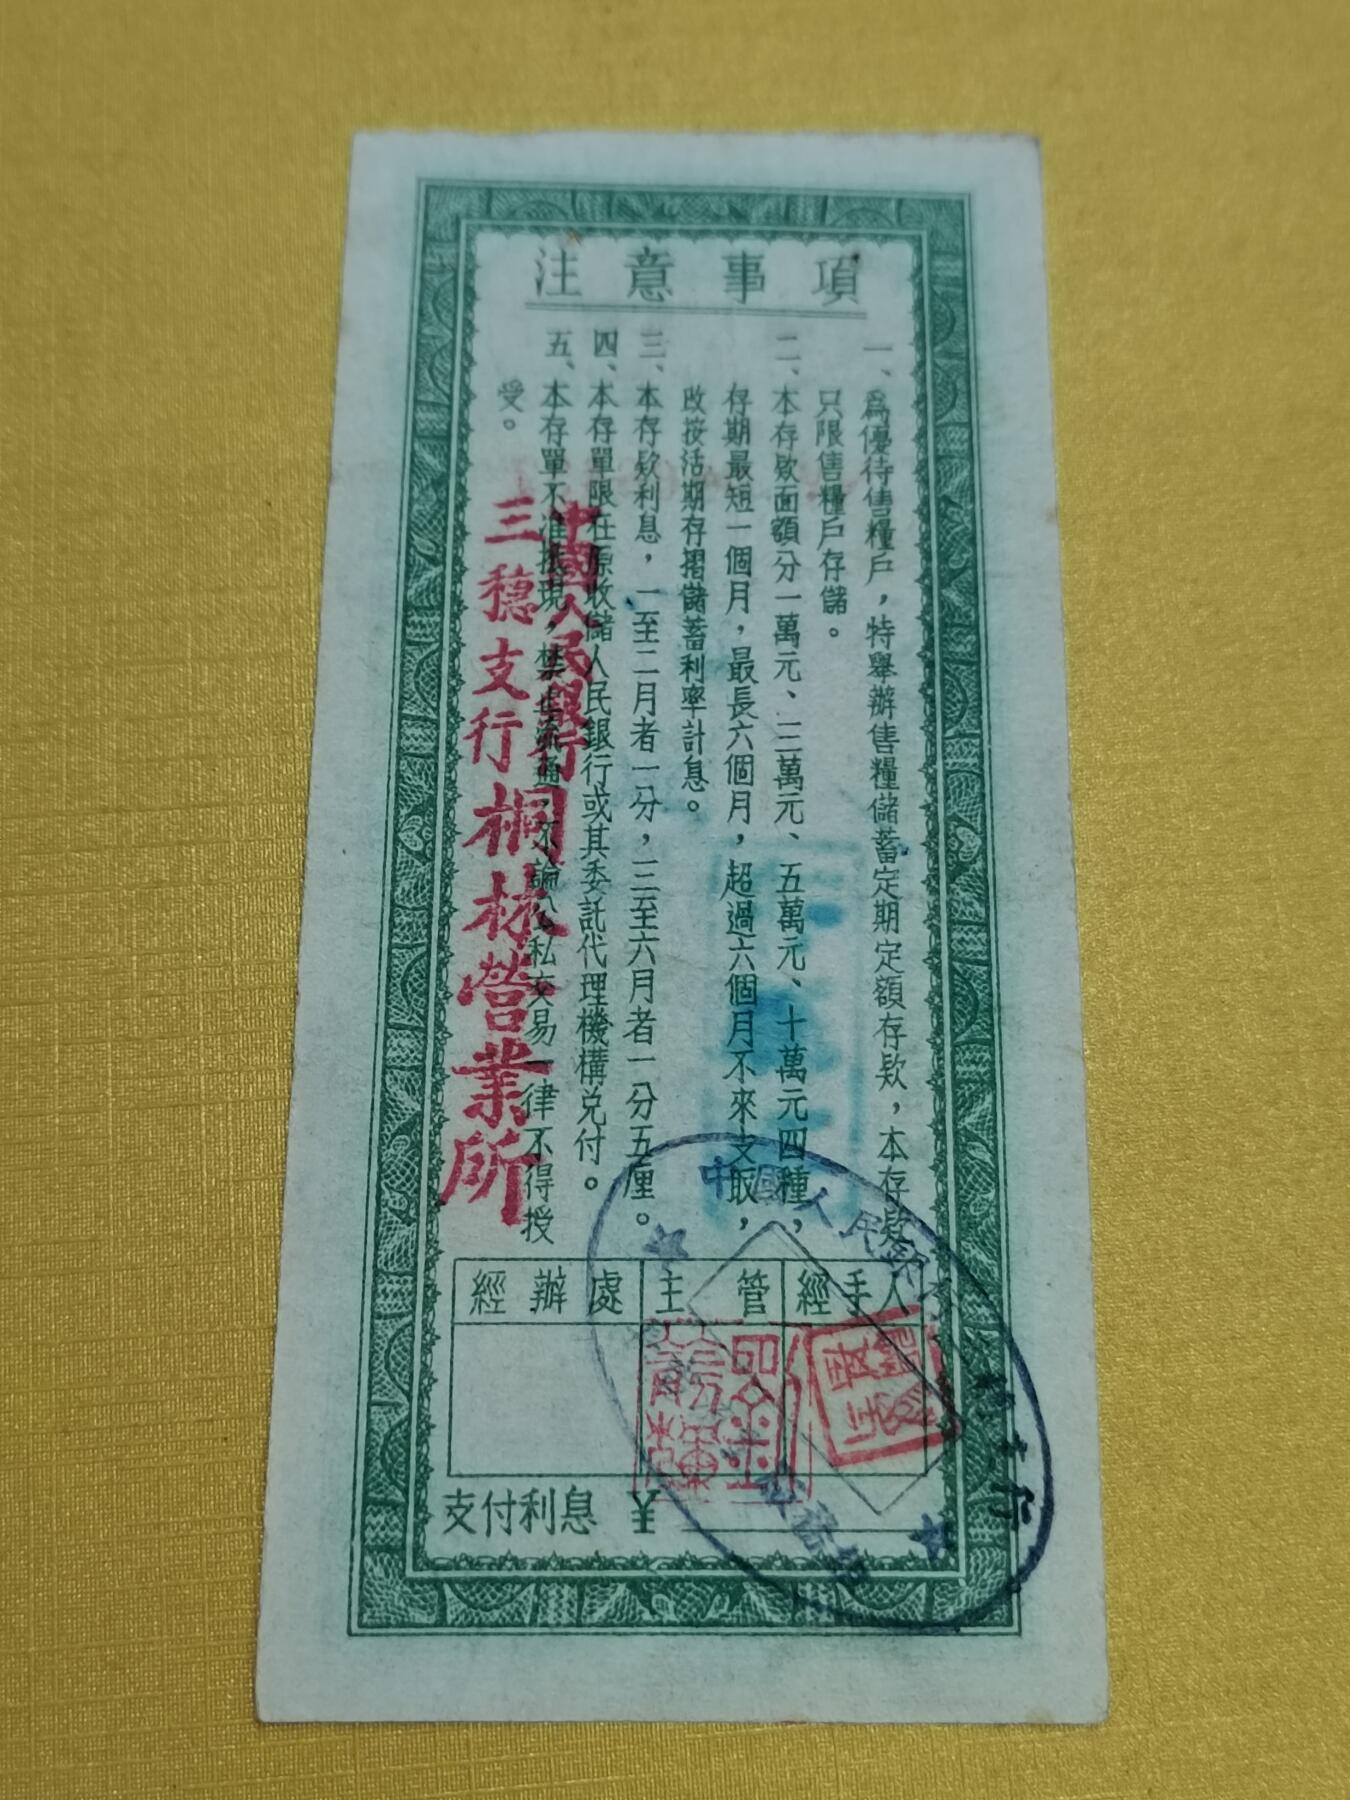 注意事項
一、爲優待售糧戶，特舉辦售糧儲蓄定期定額存欵，本存欵
只限售糧戶存儲。
二、本存欵面額分一萬元、三萬元、五萬元、十萬元四種，
存期最短一個月，最長六個月，超過六個月不來支取，
改按活期存摺儲蓄利率計息。
三、本存欵利息，一至二月者一分，三至六月者一分五厘。
四、本存單限在原收儲人民銀行或其委託代理機構兑付。
五、本存單不准提現，禁止流通，不論公私交易一律不得授
受。
中國人民銀行
三穗支行桐林營業所
經辦處 主管 經手人
支付利息 ¥
中國人民銀行
支行